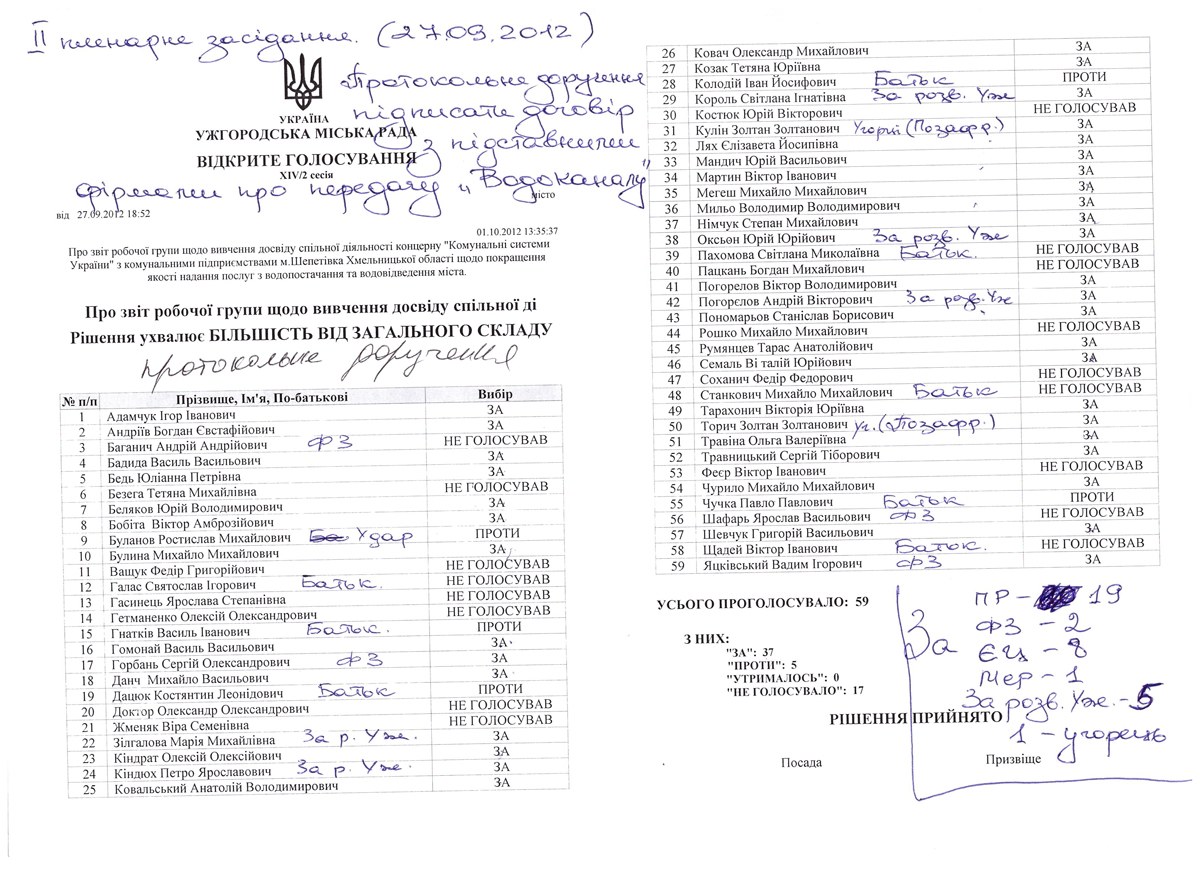 II пленарне засідання. (27.09.2012)
Протокольне доручення
підписати договір
УКРАЇНА
УЖГОРОДСЬКА МІСЬКА РАДА
з підставними
ВІДКРИТЕ ГОЛОСУВАННЯ
XIV/2 сесія
фірмами про передачу "Водоканалу"
місто
від 27.09.2012 18:52
01.10.2012 13:35:37
Про звіт робочої групи щодо вивчення досвіду спільної діяльності концерну "Комунальні системи
України" з комунальними підприємствами м.Шепетівка Хмельницької області щодо покращення
якості надання послуг з водопостачання та водовідведення міста.
Про звіт робочої групи щодо вивчення досвіду спільної ді
Рішення ухвалює БІЛЬШІСТЬ ВІД ЗАГАЛЬНОГО СКЛАДУ
протокольне доручення
№ п/п Прізвище, Ім'я, По-батькові Вибір
1 Адамчук Ігор Іванович ЗА
2 Андріїв Богдан Євстафійович ЗА
3 Баганич Андрій Андрійович ФЗ НЕ ГОЛОСУВАВ
4 Бадида Василь Васильович ЗА
5 Бедь Юліанна Петрівна ЗА
6 Безега Тетяна Михайлівна НЕ ГОЛОСУВАВ
7 Беляков Юрій Володимирович ЗА
8 Бобіта Віктор Амброзійович ЗА
9 Буланов Ростислав Михайлович Удар ПРОТИ
10 Булина Михайло Михайлович ЗА
11 Ващук Федір Григорійович НЕ ГОЛОСУВАВ
12 Галас Святослав Ігорович Батьк. НЕ ГОЛОСУВАВ
13 Гасинець Ярослава Степанівна НЕ ГОЛОСУВАВ
14 Гетманенко Олексій Олександрович НЕ ГОЛОСУВАВ
15 Гнатків Василь Іванович Батьк. ПРОТИ
16 Гомонай Василь Васильович ЗА
17 Горбань Сергій Олександрович ФЗ ЗА
18 Данч Михайло Васильович ЗА
19 Дацюк Костянтин Леонідович Батьк ПРОТИ
20 Доктор Олександр Олександрович НЕ ГОЛОСУВАВ
21 Жменяк Віра Семенівна НЕ ГОЛОСУВАВ
22 Зілгалова Марія Михайлівна За р. Уж. ЗА
23 Кіндрат Олексій Олексійович ЗА
24 Кіндюх Петро Ярославович За р. Уж. ЗА
25 Ковальський Анатолій Володимирович ЗА
26 Ковач Олександр Михайлович ЗА
27 Козак Тетяна Юріївна ЗА
28 Колодій Іван Йосифович Батьк ПРОТИ
29 Король Світлана Ігнатівна За розв. Уж ЗА
30 Костюк Юрій Вікторович НЕ ГОЛОСУВАВ
31 Кулін Золтан Золтанович (Позафр.) ЗА
32 Лях Єлізавета Йосипівна ЗА
33 Мандич Юрій Васильович ЗА
34 Мартин Віктор Іванович ЗА
35 Мегеш Михайло Михайлович ЗА
36 Мильо Володимир Володимирович ЗА
37 Німчук Степан Михайлович ЗА
38 Оксьон Юрій Юрійович За розв. Уж ЗА
39 Пахомова Світлана Миколаївна Батьк. НЕ ГОЛОСУВАВ
40 Пацкань Богдан Михайлович НЕ ГОЛОСУВАВ
41 Погорелов Віктор Володимирович ЗА
42 Погорєлов Андрій Вікторович За розв. Уж ЗА
43 Пономарьов Станіслав Борисович ЗА
44 Рошко Михайло Михайлович НЕ ГОЛОСУВАВ
45 Румянцев Тарас Анатолійович ЗА
46 Семаль Ві талій Юрійович ЗА
47 Соханич Федір Федорович НЕ ГОЛОСУВАВ
48 Станкович Михайло Михайлович Батьк НЕ ГОЛОСУВАВ
49 Тарахонич Вікторія Юріївна ЗА
50 Торич Золтан Золтанович уг. (Позафр.) ЗА
51 Травіна Ольга Валеріївна ЗА
52 Травницький Сергій Тіборович ЗА
53 Феєр Віктор Іванович НЕ ГОЛОСУВАВ
54 Чурило Михайло Михайлович ЗА
55 Чучка Павло Павлович Батьк ПРОТИ
56 Шафарь Ярослав Васильович ФЗ НЕ ГОЛОСУВАВ
57 Шевчук Григорій Васильович ЗА
58 Щадей Віктор Іванович Батьк. НЕ ГОЛОСУВАВ
59 Яцківський Вадим Ігорович ФЗ ЗА
УСЬОГО ПРОГОЛОСУВАЛО: 59
З НИХ:
"ЗА": 37
"ПРОТИ": 5
"УТРИМАЛОСЬ": 0
"НЕ ГОЛОСУВАЛО": 17
За
ПР - 19
ФЗ - 2
ЄЦ - 8
Мер - 1
За розв. Уж. - 5
РІШЕННЯ ПРИЙНЯТО
1 - угорець
Посада Призвіще